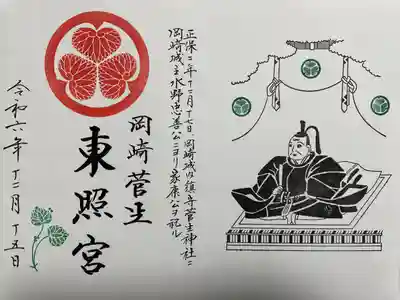 正保二年十二月十七日、岡崎城内鎮守菅生神社ニ
岡崎城主水野忠善公ニヨリ家康公ヲ祀ル
岡崎菅生
東照宮
令和六年十二月十五日